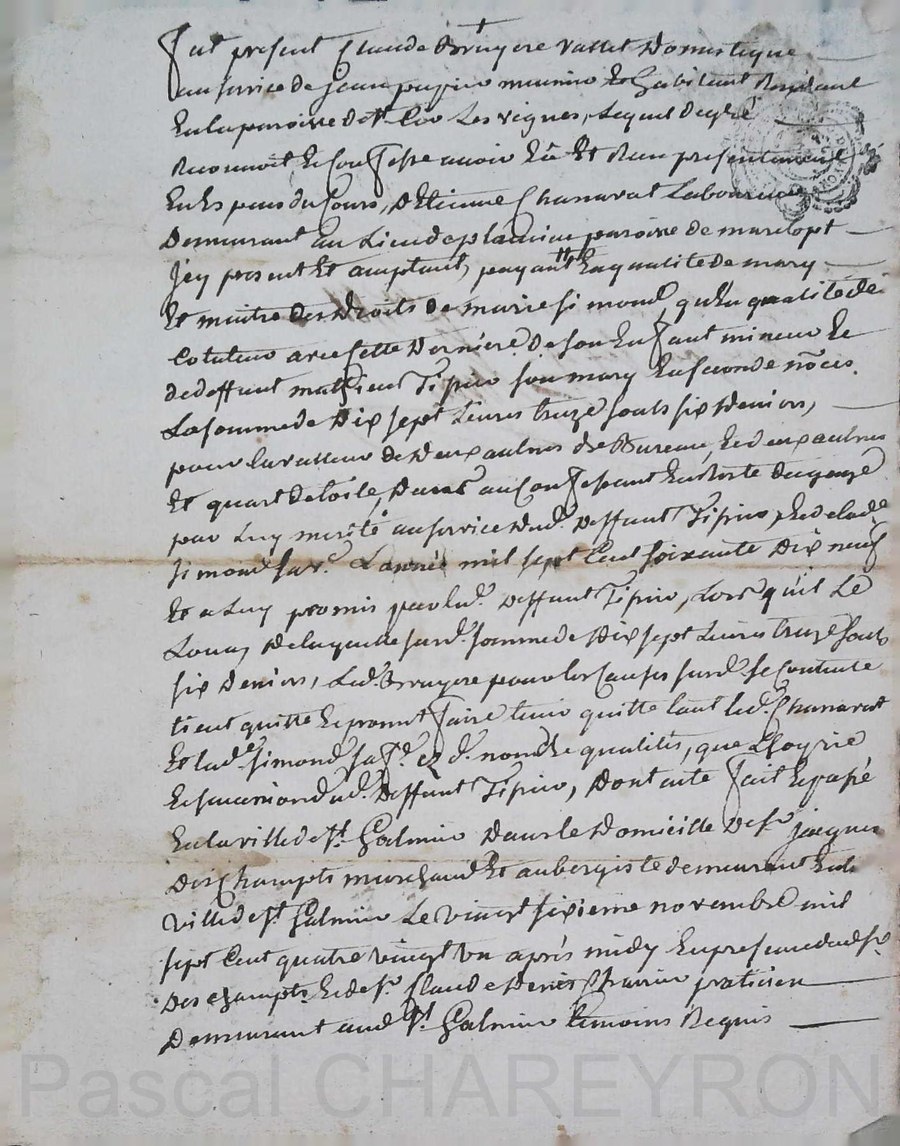 Fut present Claude Bruyere vallet Domestique
au service de Jean papier munier et habitant Residant
En la paroisse de st Les vignes, Lequel de gré
Reconnoit et Confesse avoir Eû Et Reçu presentement
En Especes du Cours, D'Etienne Chanavat Laboureur
Demeurant au Lieu de paroisse de marclopt
Jcy present Et acceptant, payant tt En qualité de mary
Et maitre des Droits de marie simond, qu'En qualité de
Cotuteur avec cette Derniere, de son Enfant mineur Et
de deffunt mathieu Tipier son mary En seconde nôces,
La somme de Dix sept Livres treize sols six Deniers,
pour la valleur de Deux aulnes de Bureau, Et deux aulnes
Et quart de toile, Dues au Confessant En Reste du gage
par Luy merité au service dud. Deffunt Tipier, Et de lade
simond sa ve. L'année mil sept Cent soixante Dix neuf
Et a Luy promis par led. Deffunt Tipier, Lors qu'il Le
Loua, De laquelle susd. somme de Dix sept Livres treize sols
six Deniers, Led. Bruyere pour les Causes susd. se Contente
tient quitte Et promet faire tenir quitte tant led. Chanavat
Et lade. simond sa fe. ez d. noms Et qualités, que L'hoyrie
Et succession dud. Deffunt Tipier, Dont acte fait Et passé
En la ville de st. Galmier Dans le Domicille De sr. jacques
Deschampts marchand Et aubergiste demeurant En la
ville de st. Galmier Le vingt sixieme novembre mil
sept Cent quatre vingt un après midy En presence dud. sr.
Deschampts, Et de sr. Claude Denis praticien
Demeurant aud. st. Galmier temoins Requis
Pascal CHAREYRON